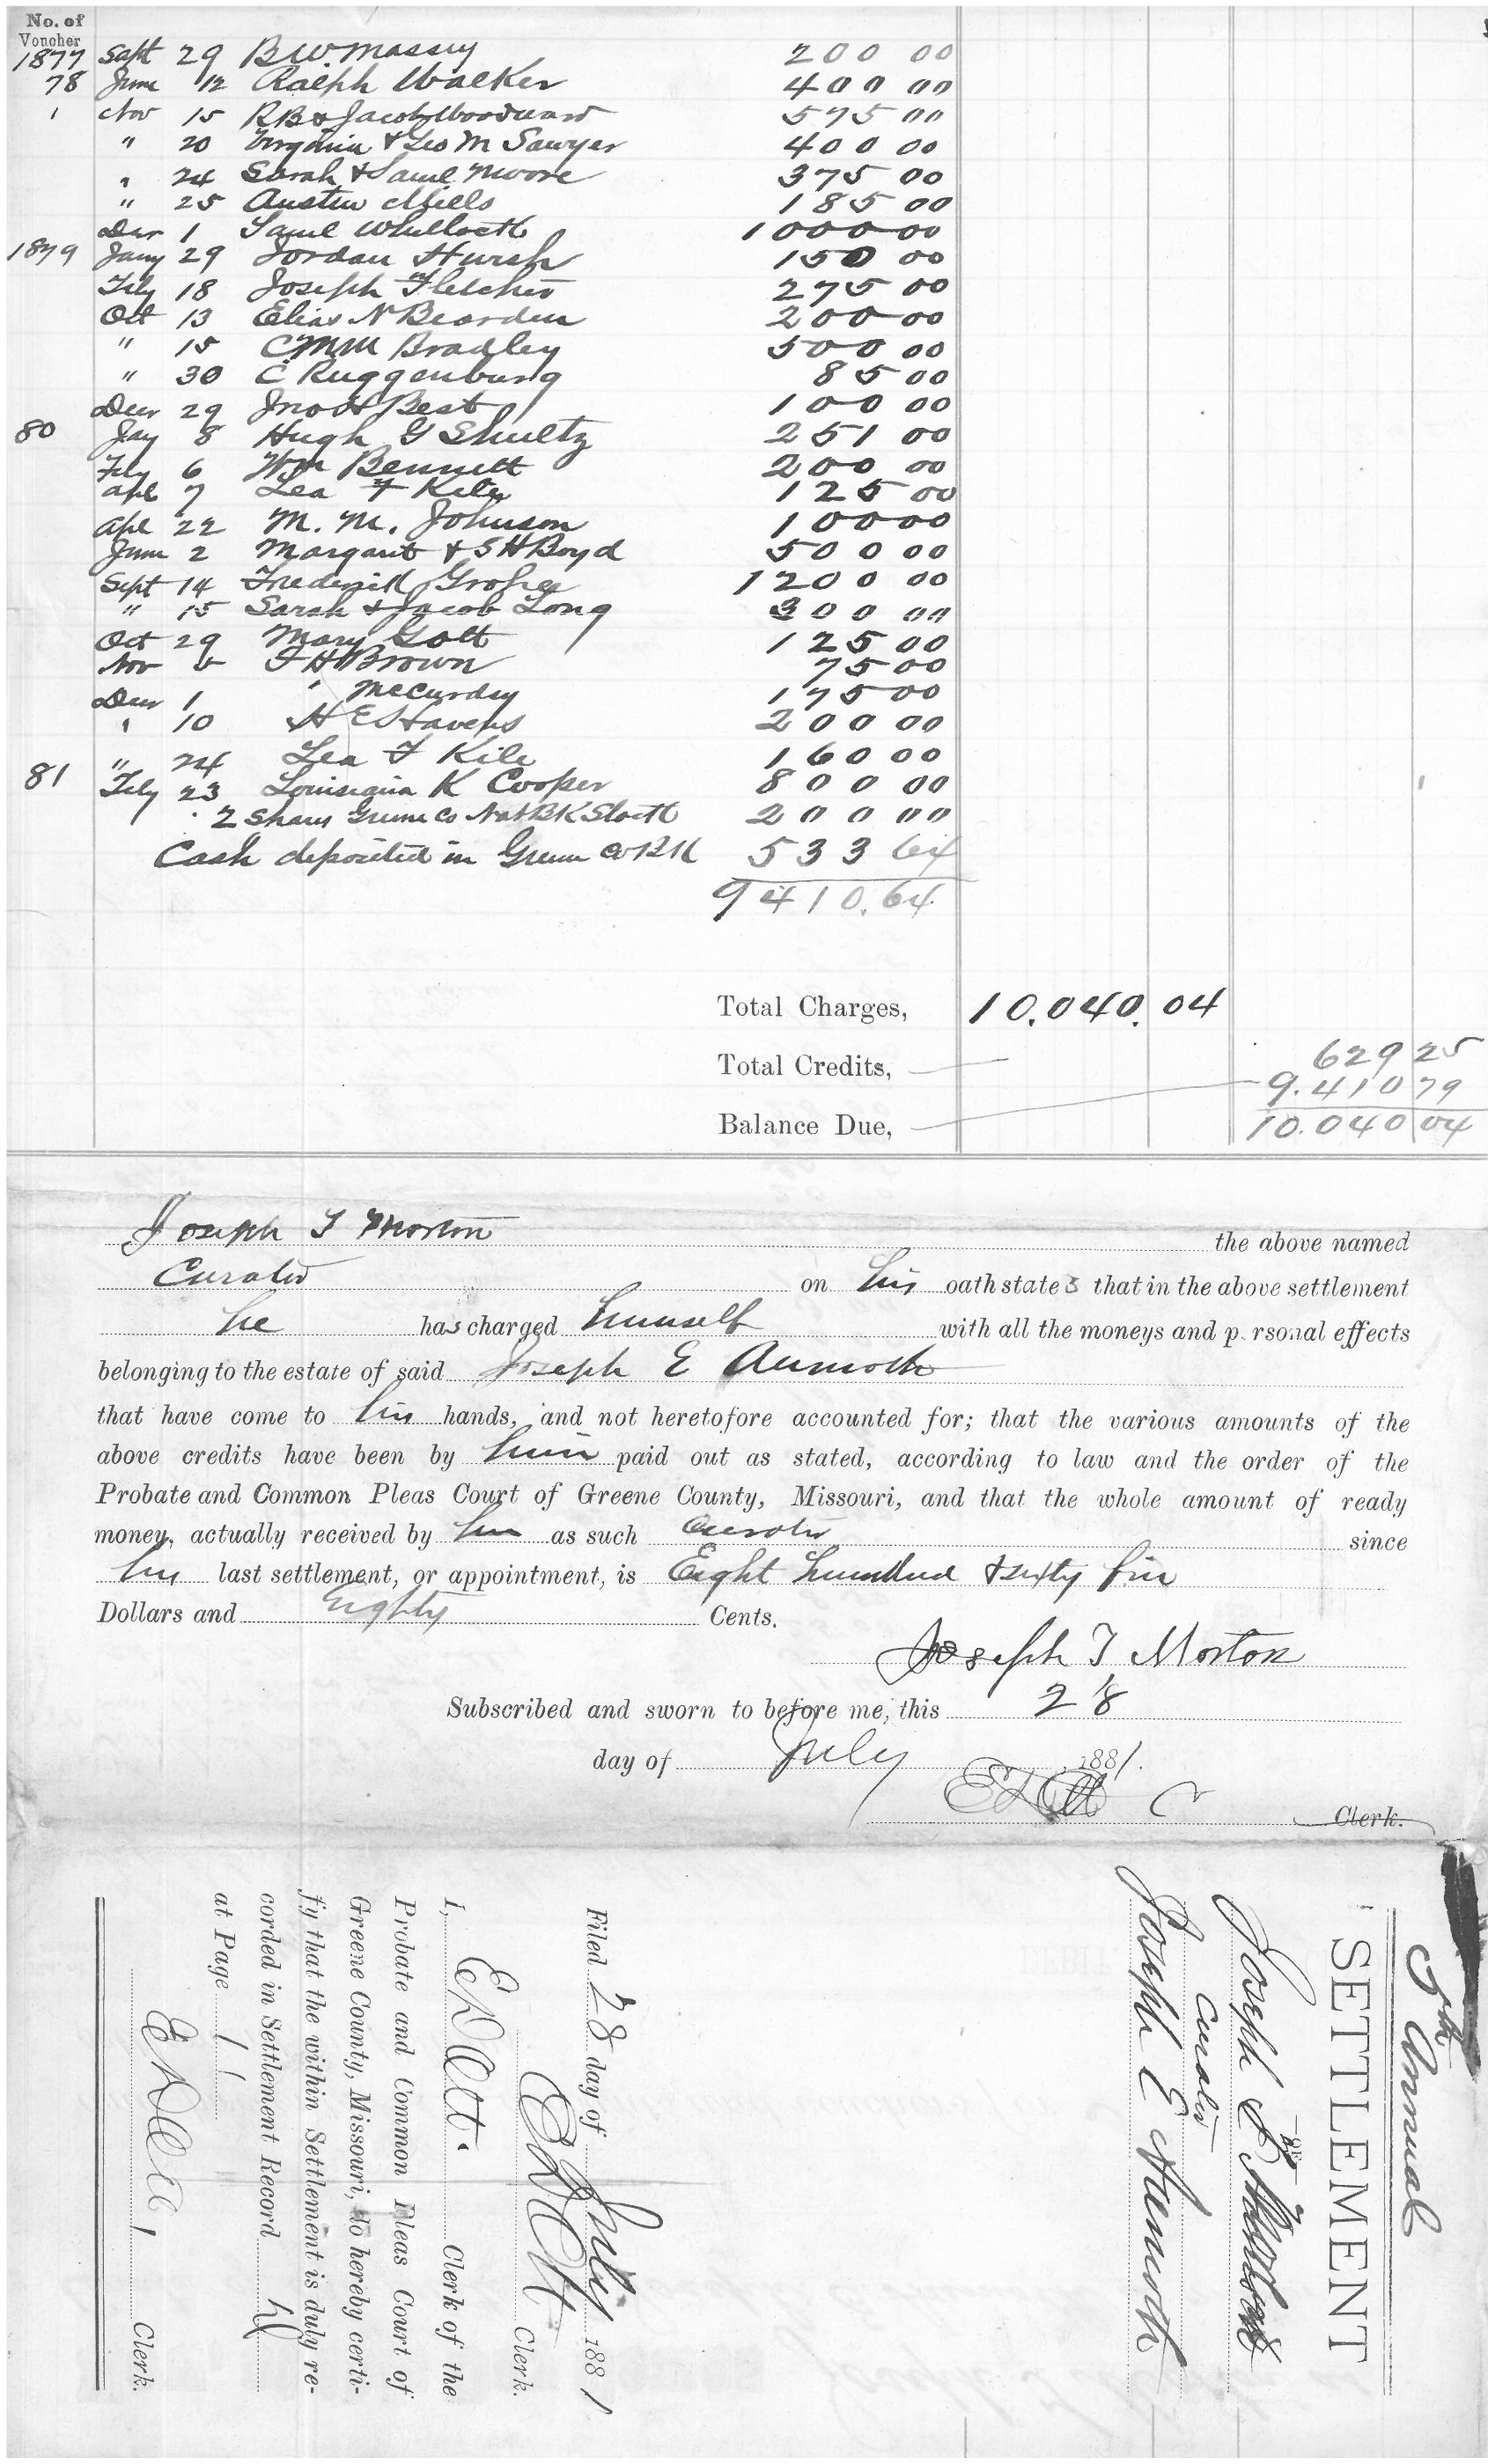 No. of
Voucher
1877 Sept 29 B.W. Massey 200 00
78 June 12 Ralph Walker 400 00
Nov 15 RB & Jacob Woodward 575 00
" 20 Virginia & Geo M Sawyer 400 00
" 24 Sarah & Saml Moore 375 00
" 25 Austin Mills 185 00
Decr 1 Saml Whitlock 1000 00
1879 Jany 29 Jordan Hursh 150 00
Feby 18 Joseph Fletcher 275 00
Oct 13 Elias N Bearden 200 00
" 15 CMM Bradley 500 00
" 30 C Ruggenburg 85 00
Decr 29 Jno H Best 100 00
80 Jay 8 Hugh G Shultz 251 00
Feby 6 Wm Bennett 200 00
Apl 7 Lea F Kile 125 00
Apl 22 M. M. Johnson 100 00
June 2 Margaret & S H Boyd 500 00
Sept 14 Frederick 1200 00
" 15 Sarah & Jacob Long 300 00
Oct 29 Mary Galt 125 00
Nov H Brown 75 00
Decr 1 " McCurdy 175 00
" 10 H E Havens 200 00
" 24 Lea F Kile 160 00
81 Feby 23 Louisiana K Cooper 800 00
" 2 Shares Greene Co Nat BK Stock 200 00
Cash deposited in Green Co BK 533 64
9410.64
Total Charges, 10.040.04
Total Credits, 629 25
9.410 79
Balance Due, 10.040 04
Joseph T Morton the above named
Curator on his oath states that in the above settlement
he has charged himself with all the moneys and p rsonal effects
belonging to the estate of said Joseph E
that have come to his hands, and not heretofore accounted for; that the various amounts of the
above credits have been by him paid out as stated, according to law and the order of the
Probate and Common Pleas Court of Greene County, Missouri, and that the whole amount of ready
money, actually received by him as such Curator since
his last settlement, or appointment, is Eight hundred & sixty five
Dollars and Eighty Cents.
Joseph T Morton
Subscribed and sworn to before me, this 28
day of July 1881.
E D Ott C Clerk.
5th Annual
SETTLEMENT
OF
Joseph T
Curator
Joseph E
Filed 28 day of July 1881
E D Ott Clerk.
I, E D Ott. Clerk of the
Probate and Common Pleas Court of
Greene County, Missouri, do hereby certi-
fy that the within Settlement is duly re-
corded in Settlement Record
at Page 11
E D Ott, Clerk.